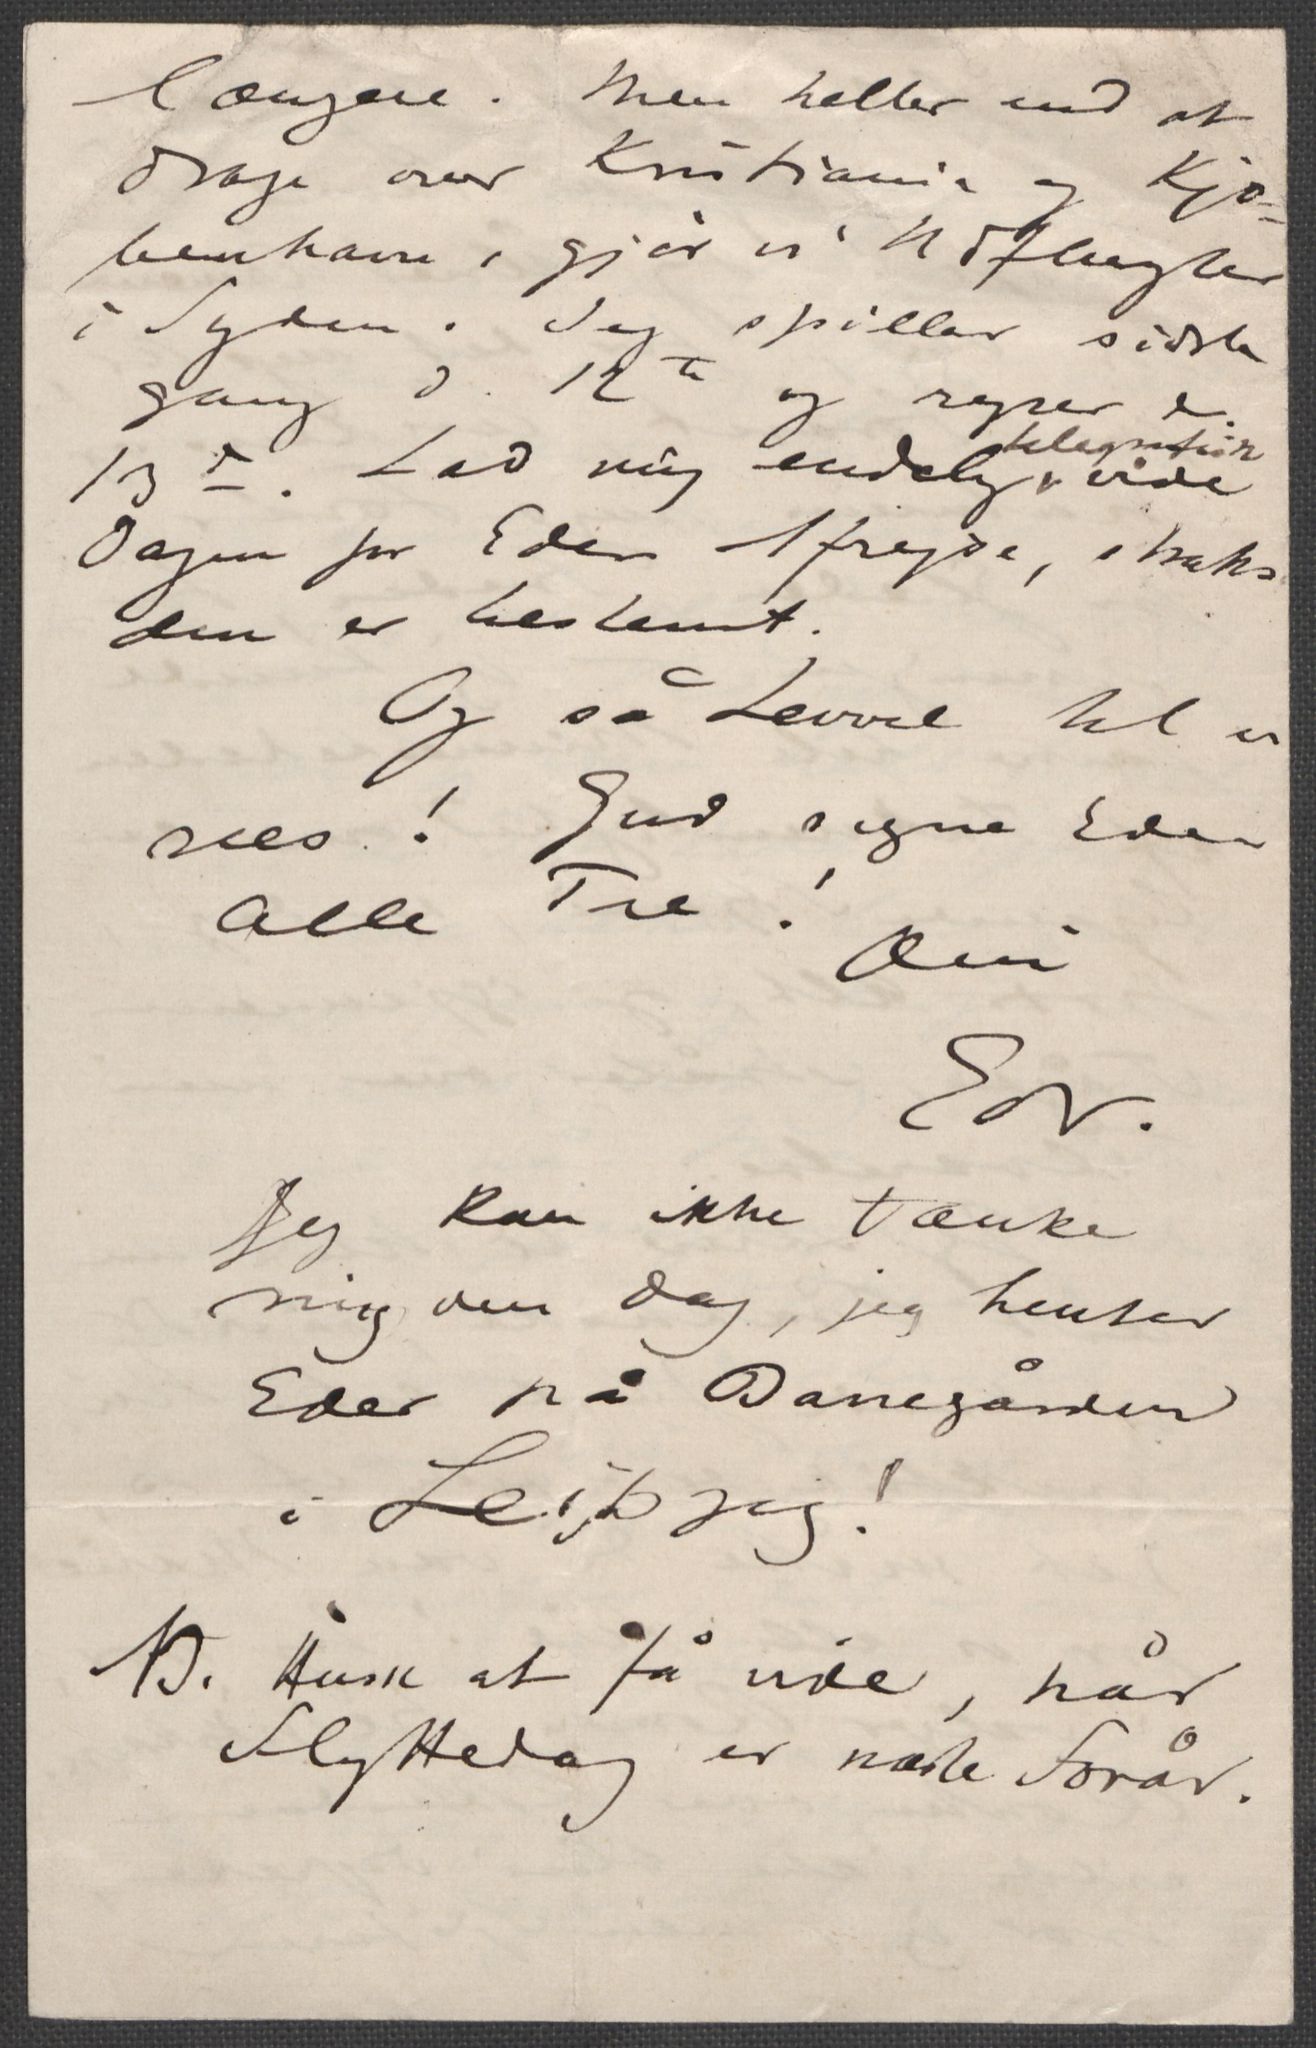 længere. Men heller end at
drage over Kristiania og Kjø-
benhavn, gjør vi Udflugter
i Syden. Jeg spiller sidste
gang d. 12te og rejser d.
13de. Lad mig endelig telegrafisk vide
Dagen for Eders Afrejse, straks
den er bestemt.
Og så Levvel til vi
sees! Gud signe Eder
alle Tre!
Din
Edv.
Jeg kan ikke tænke
mig den Dag, jeg henter
Eder på Banegården
i Leipzig!
NB. Husk at få vide, når
Flyttedag er næste Forår.